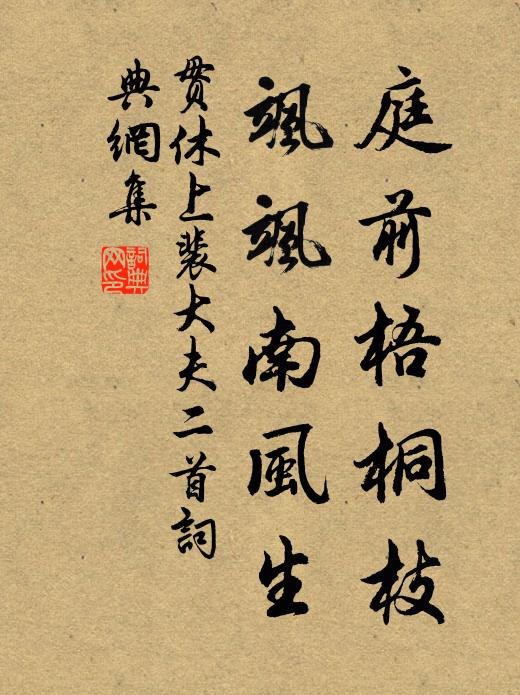 庭前梧桐枝
颯颯南風生
贯休上裴大夫二首詞
典網集
詞典
网印